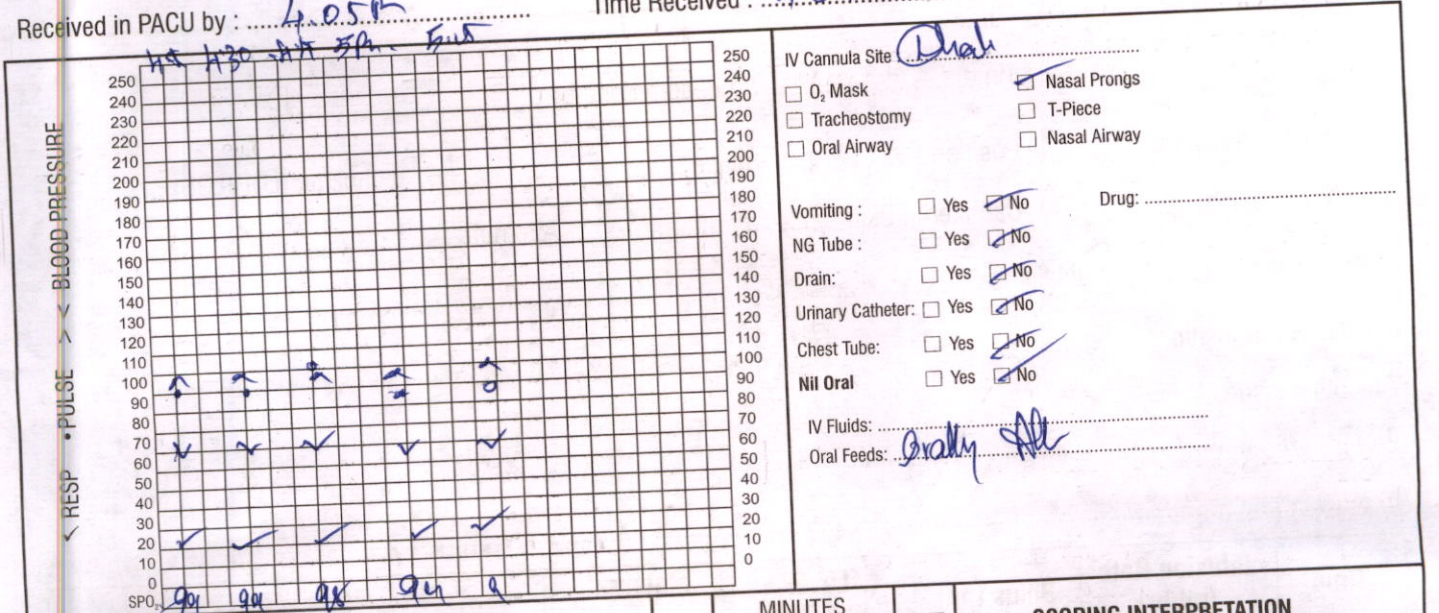 Received in PACU by : 4.05P
Time Received :
430 5Pm
BLOOD PRESSURE
> <
• PULSE
< RESP
250
240
230
220
210
200
190
180
170
160
150
140
130
120
110
100
90
80
70
60
50
40
30
20
10
0
SPO₂ 99 99 98
250
240
230
220
210
200
190
180
170
160
150
140
130
120
110
100
90
80
70
60
50
40
30
20
10
0
IV Cannula Site
O₂ Mask Nasal Prongs
Tracheostomy T-Piece
Oral Airway Nasal Airway
Vomiting : Yes No Drug:
NG Tube : Yes No
Drain: Yes No
Urinary Catheter: Yes No
Chest Tube: Yes No
Nil Oral Yes No
IV Fluids:
Oral Feeds: Orally
MINUTES
SCORING INTERPRETATION